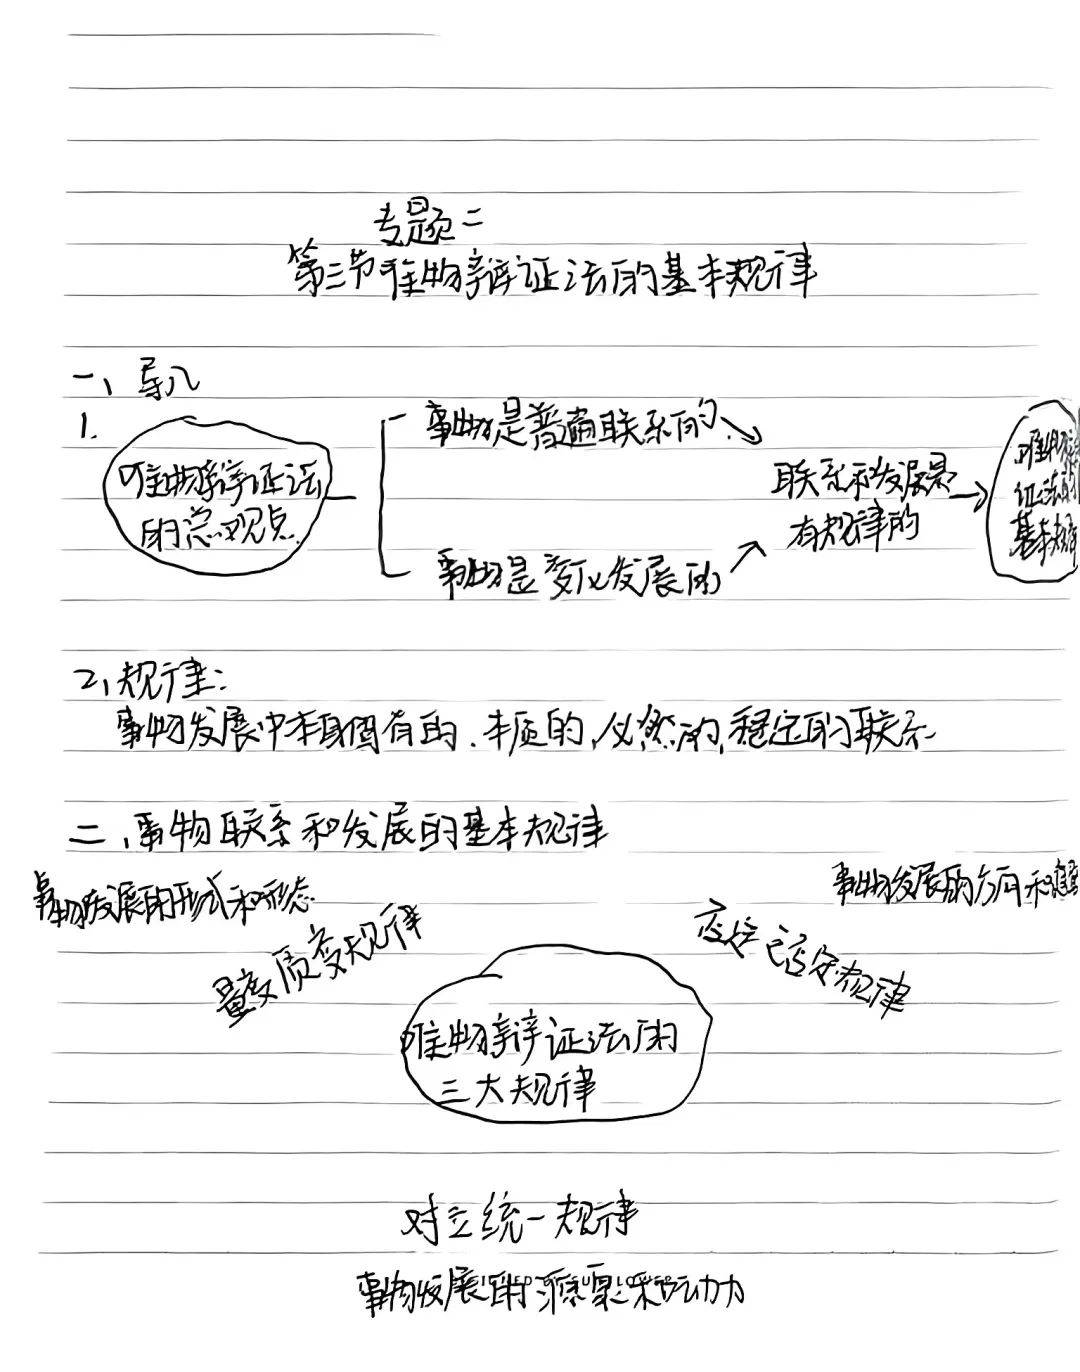 专题二
第三节唯物辩证法的基本规律
一、导入
1.
唯物辩证法
的总观点
事物是普遍联系的
事物是变化发展的
联系和发展是
有规律的
唯物辩
证法的
基本规律
2、规律:
事物发展中本身固有的、本质的、必然的、稳定的联系
二、事物联系和发展的基本规律
事物发展的形式和形态
量变质变规律
事物发展的方向和道路
否定之否定规律
唯物辩证法的
三大规律
对立统一规律
事物发展的源泉和动力